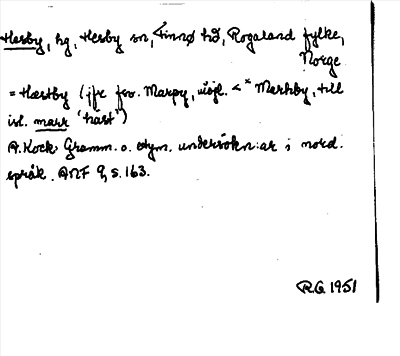 Hesby, hg, Hesby sn, Finnø hd, Rogaland fylke,
Norge
= Hæstby (jfr fsv. Marpy, uisjl. < * Merhby, till
isl. marr "häst")
A. Kock Gramm. o. etym. undersökn:ar i nord.
språk. ANF 9, s. 163.
R.G. 1951